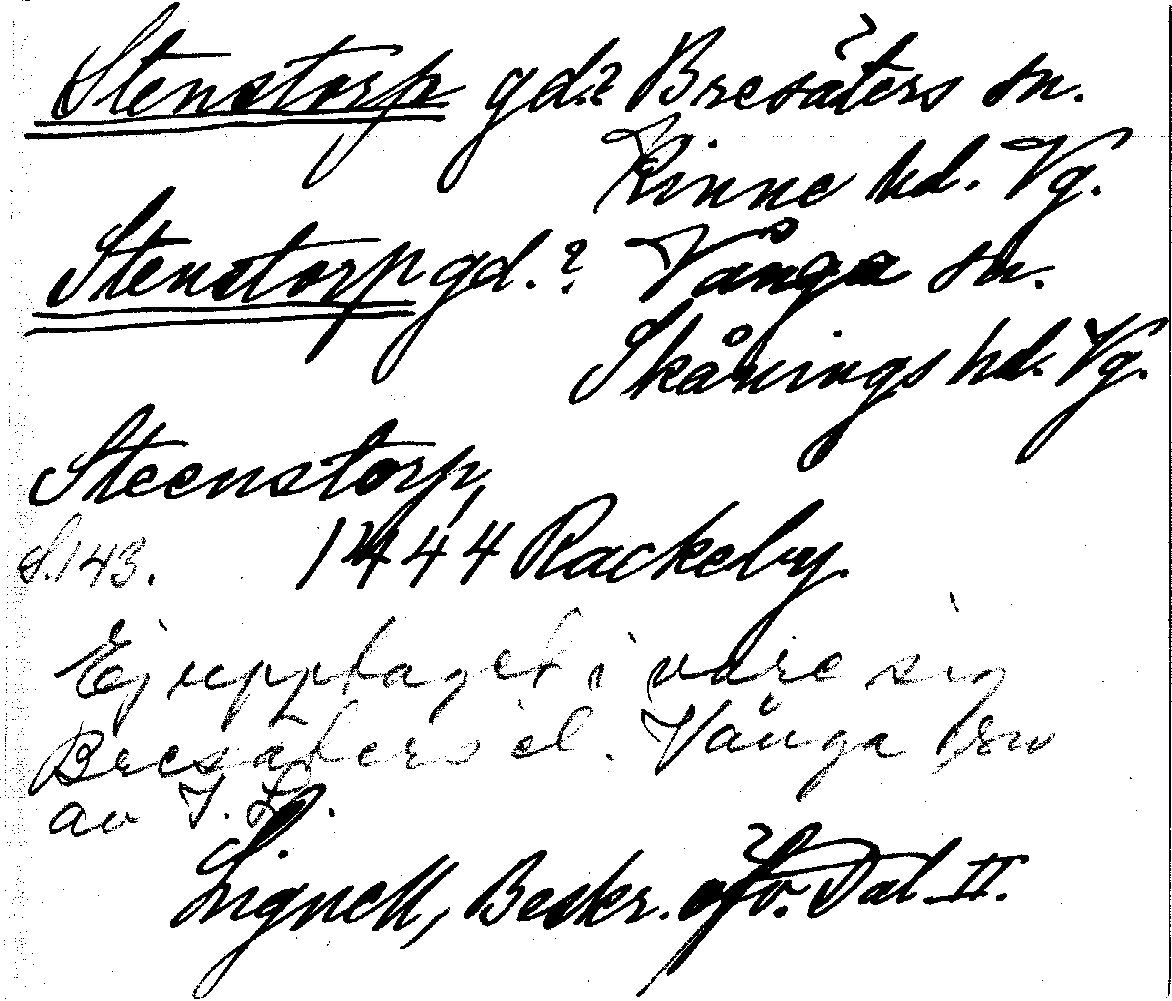 Stenstorp gd.? Bresäters sn.
Kinne hd. Vg.
Stenstorp gd.? Vånga sn.
Skånings hd. Vg.
Steenstorp,
S.143. 1444 Rackeby.
Ej upptaget i vare sig
Bresäters el. Vånga snr
av I. L.
Lignell, Beskr. öfv. Dal II.